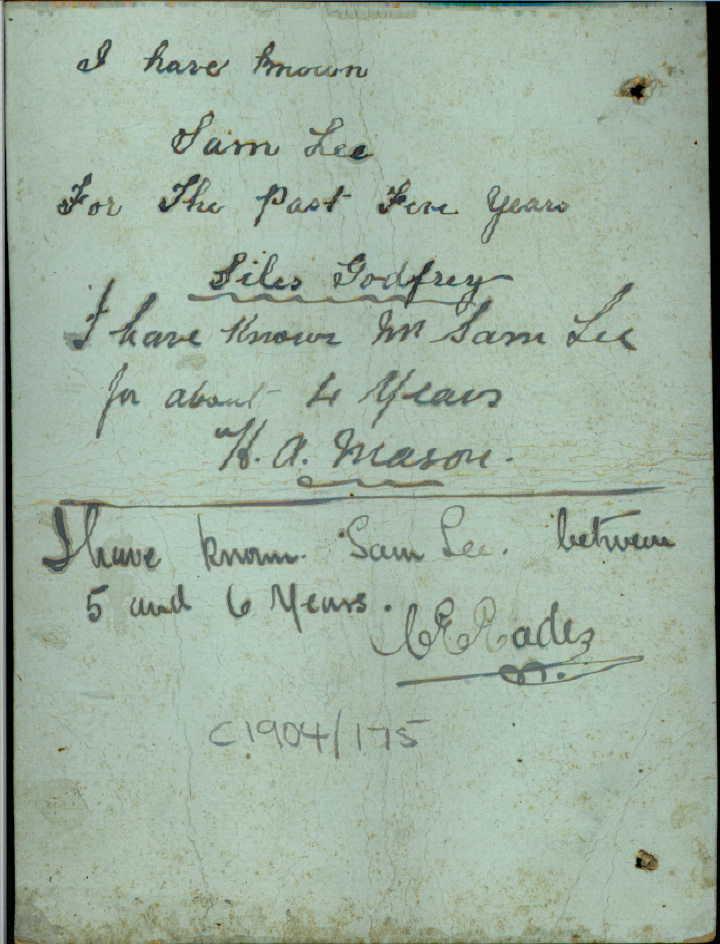 I have known
Sam Lee
For The Past Five Years
Giles Godfrey
I have Known Mr Sam Lee
for about 4 Years
H. A. Mason.
I have known Sam Lee. between
5 and 6 Years.
C E Eades
C1904/175